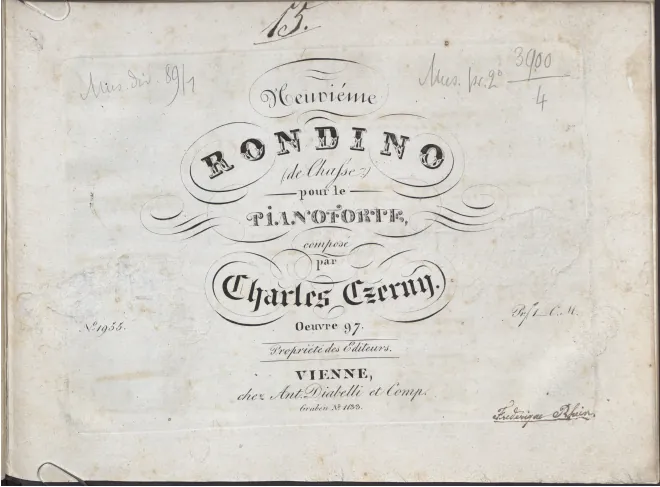 15.
Mus. div. 89/1
Mus. pr. 2° 3900
4
Neuviéme
RONDINO
(de Chaſse)
pour le
PIANOFORTE,
composé
par
Charles Czerny.
Nº 1955.
Oeuvre 97.
Pr. f 1_ C. M.
Propriété des Editeurs.
VIENNE,
chez Ant. Diabelli et Comp.
Graben Nº 1133.
Frederique Rhein.